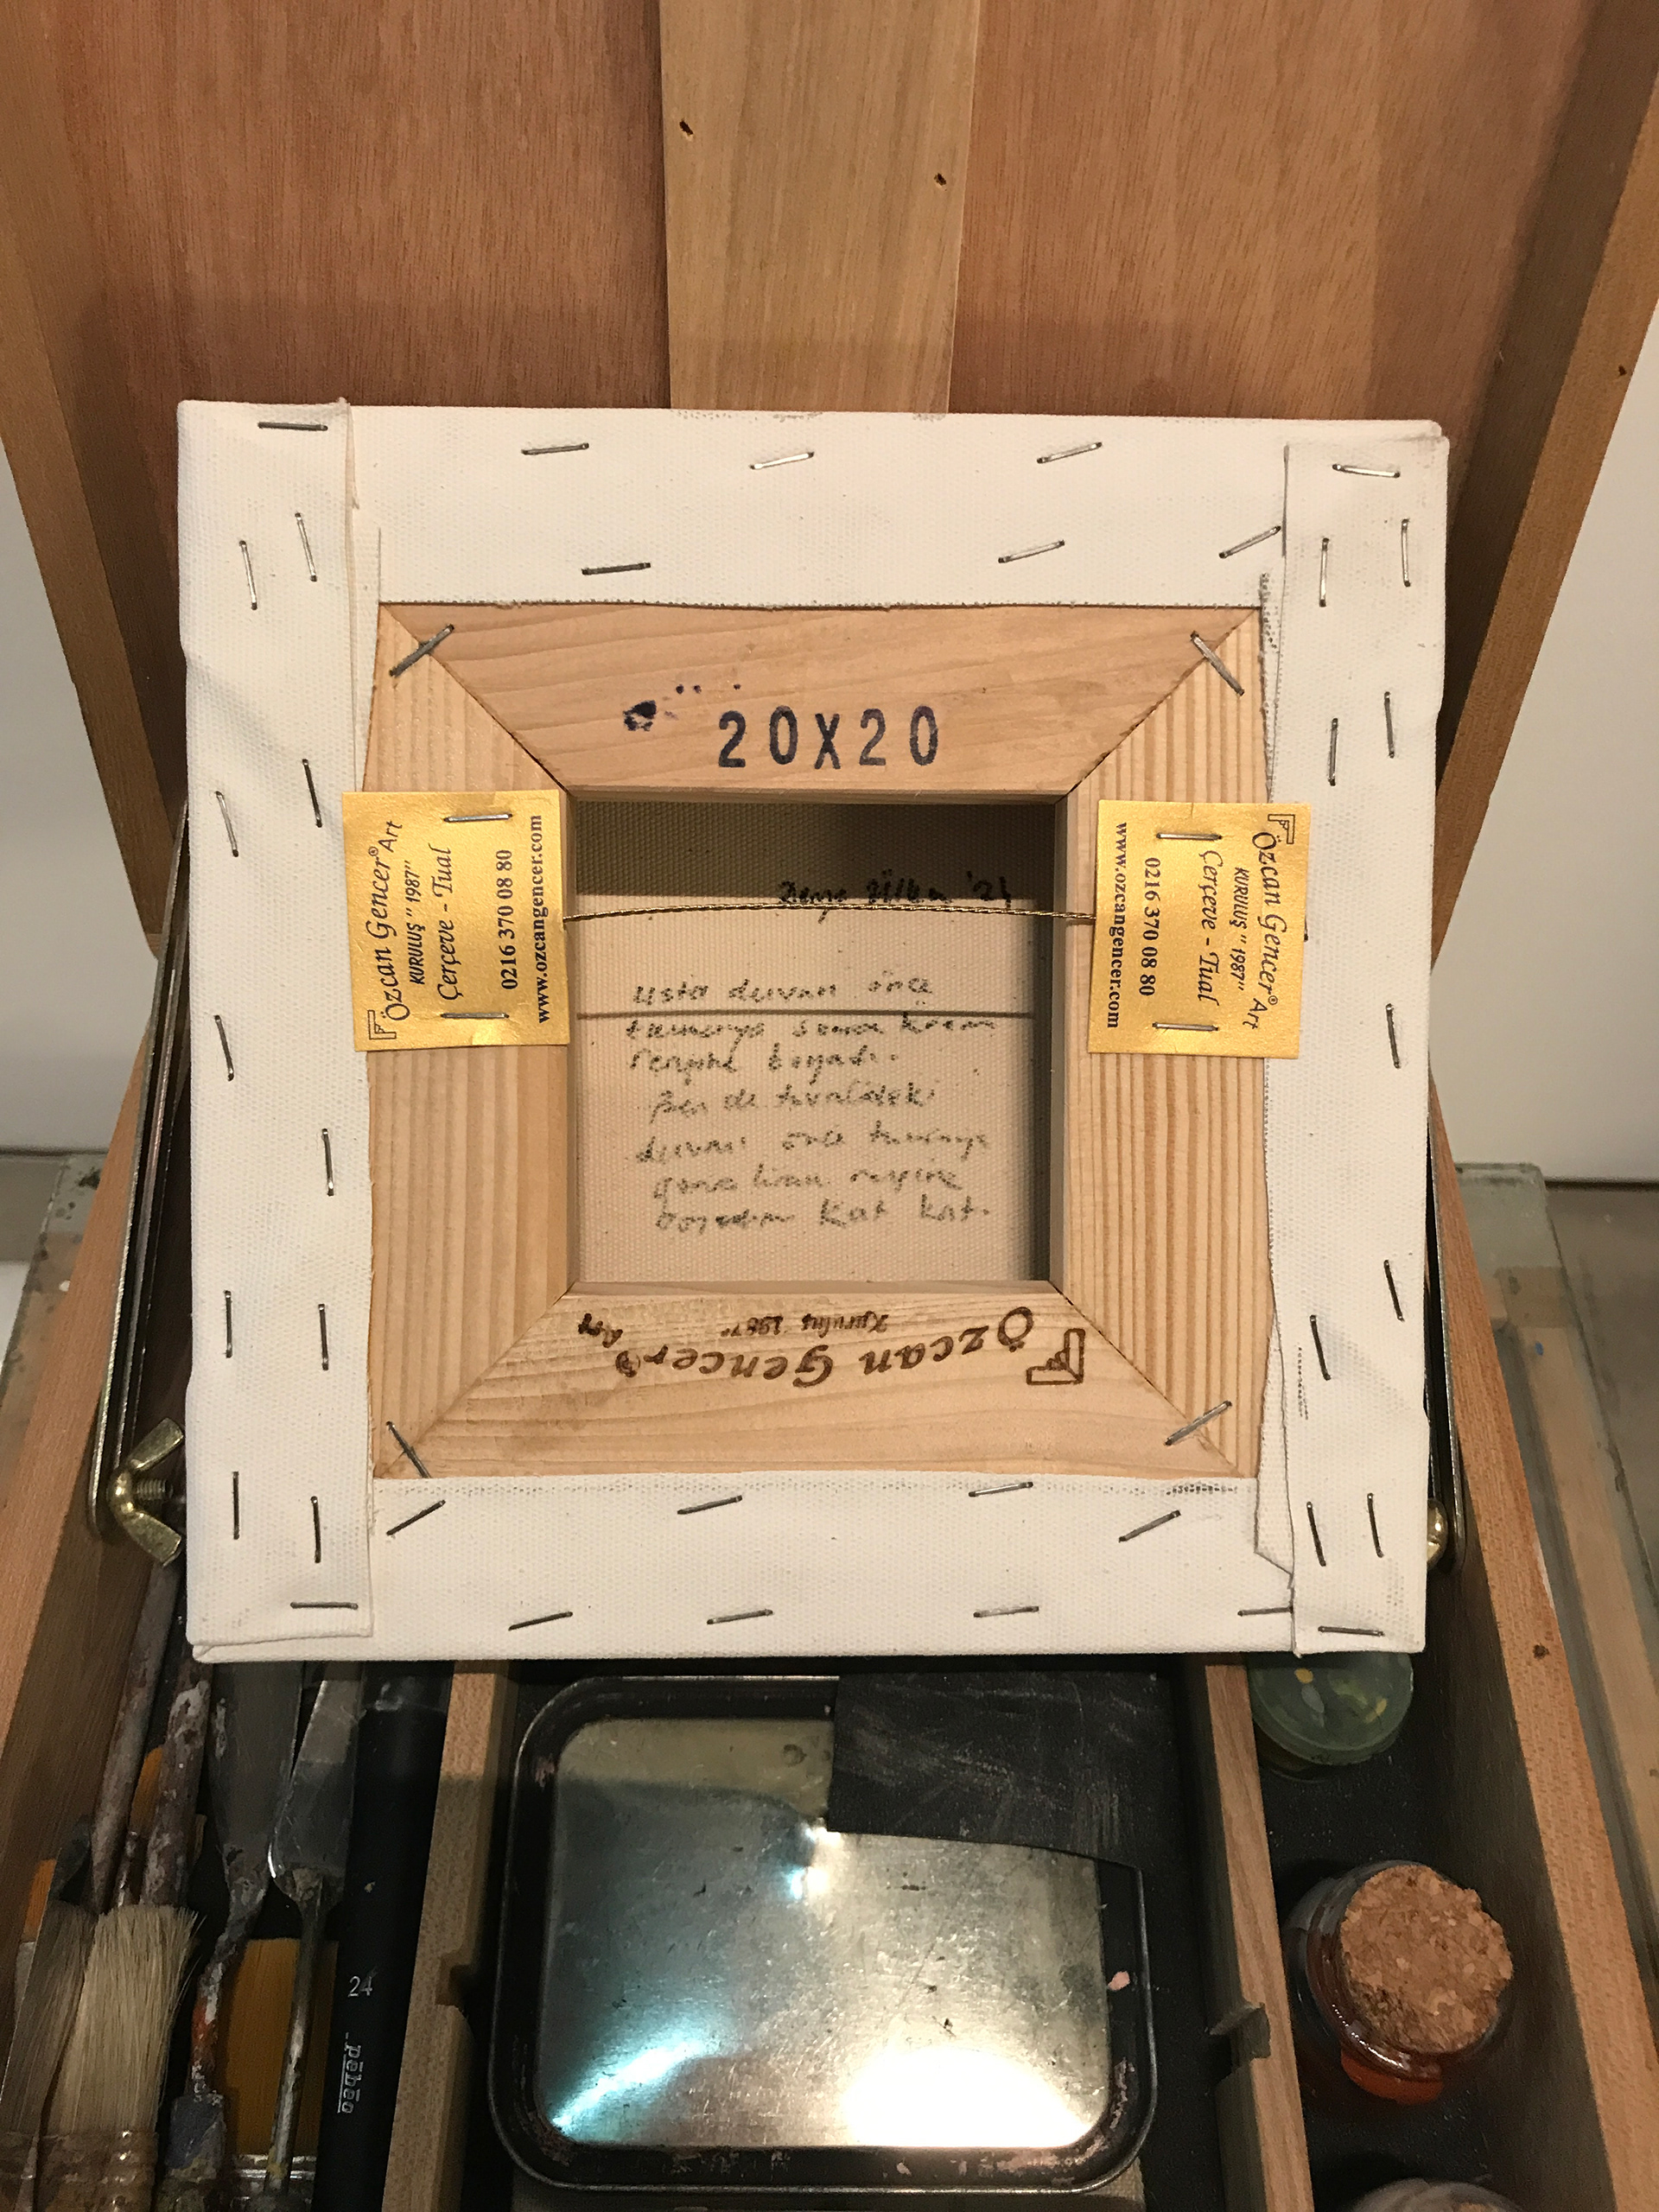 20X20
Özcan Gencer® Art
KURULUŞ "1987"
Çerçeve - Tual
0216 370 08 80
www.ozcangencer.com
Özcan Gencer® Art
KURULUŞ "1987"
Çerçeve - Tual
0216 370 08 80
www.ozcangencer.com
'21
usta duvarı önce
turuncuya sonra krem
rengine boyadı.
Ben de tuvaldeki
duvarı önce turuncuya
sonra krem rengine
boyadım kat kat.
Özcan Gencer® Art
Kuruluş "1987"
24
pébéo